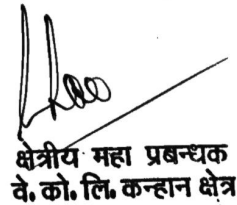 क्षेत्रीय महा प्रबन्धक
वे. को. लि. कन्हान क्षेत्र